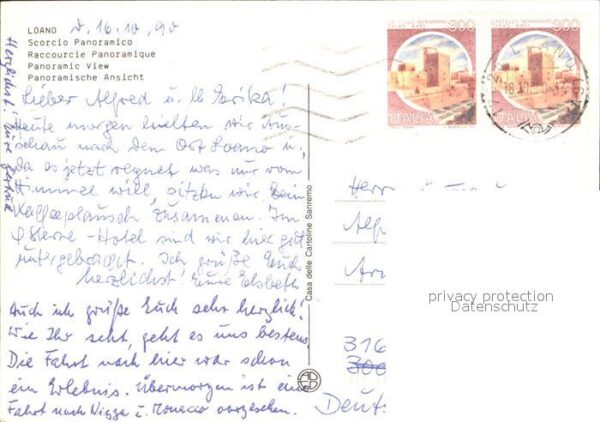 LOANO d. 16.10.90
Scorcio Panoramico
Raccourcie Panoramique
Panoramic View
Panoramische Ansicht
Lieber Alfred u. lb Erika!
Heute morgen hielten wir Aus-
schau nach dem Ort Loano u.
da es jetzt regnet was nur vom
Himmel will, sitzen wir beim
Kaffeeplausch zusammen. Im
4 Sterne-Hotel sind wir hier gut
untergebracht. Ich grüße Euch
herzlichst! Eure Elsbeth
Auch ich grüße Euch sehr herzlich!
Wie Ihr seht, geht es uns bestens
Die Fahrt nach hier war schon
ein Erlebnis. Übermorgen ist eine
Fahrt nach Nizza u. Monaco vorgesehen.
Herzlichst! Eure Gertrud
Casa delle Cartoline Sanremo
800 800
ITALIA ITALIA
Herr
Alf
privacy protection
Datenschutz
316
300
Deuts